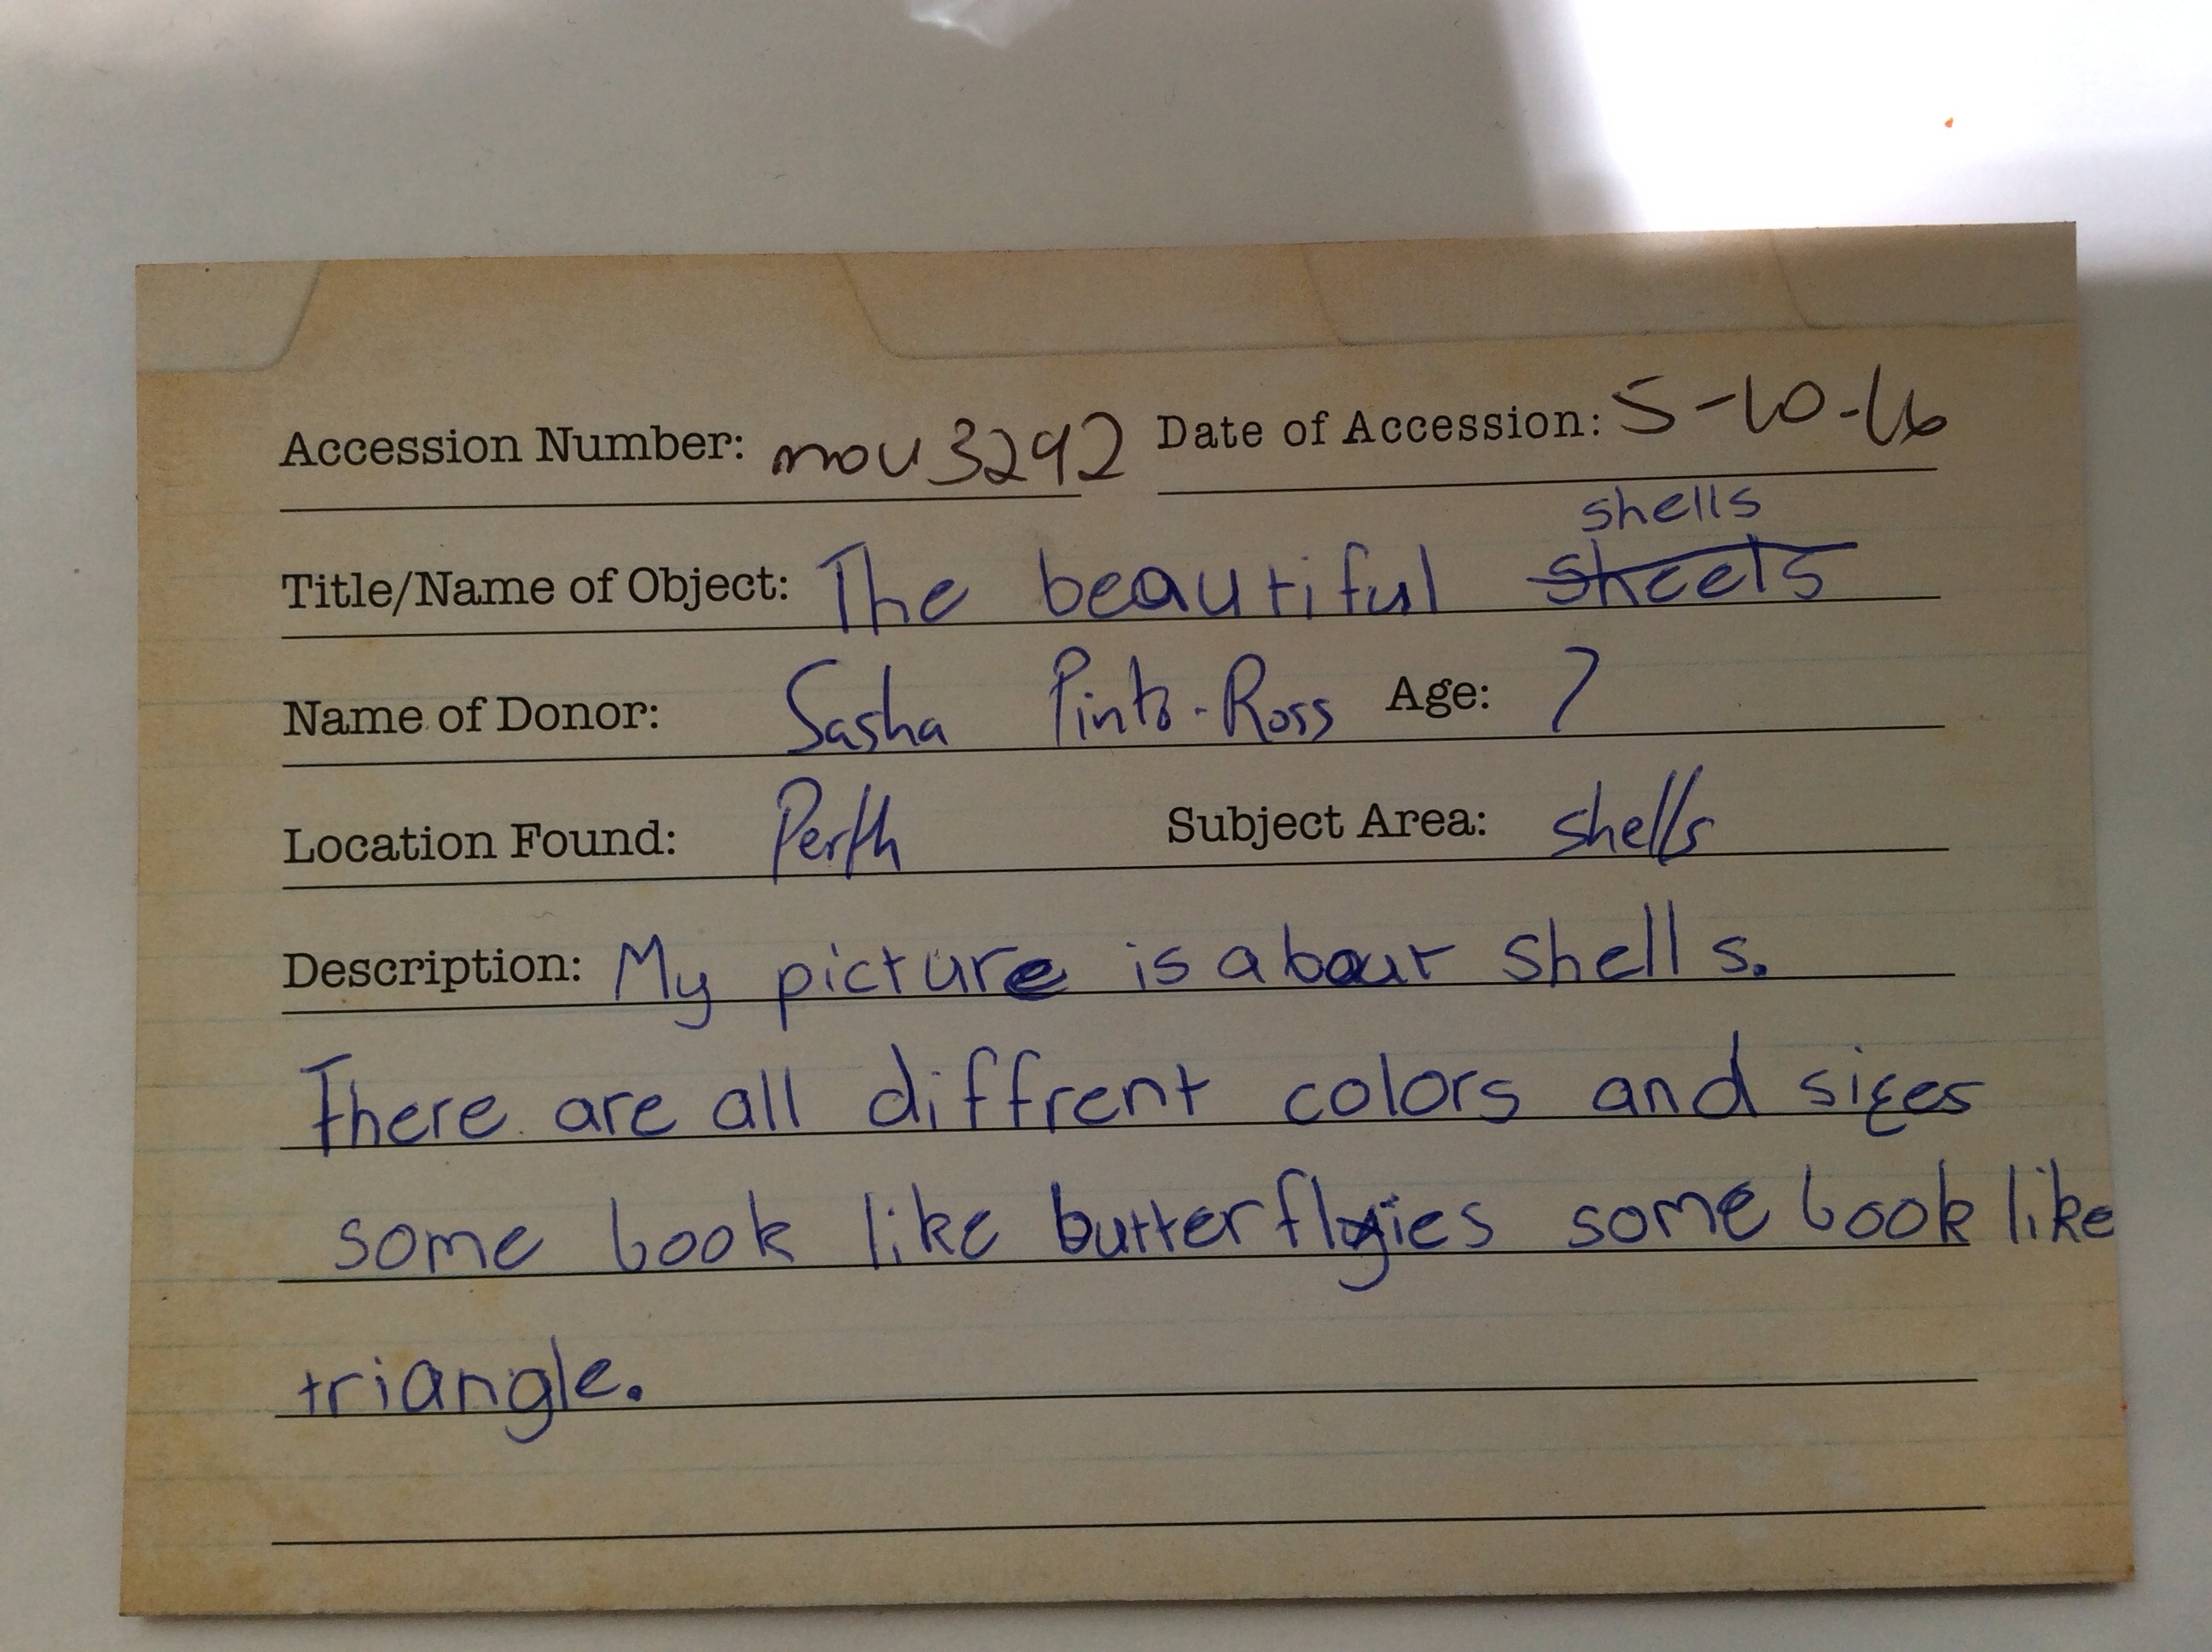 Accession Number: mou3292 Date of Accession: 5-10-16
shells
Title/Name of Object: The beautiful sheels
Name of Donor: Sasha Pinto-Ross Age: 7
Location Found: Perth Subject Area: shells
Description: My picture is about shells.
There are all diffrent colors and sizes
some look like butterflyies some look like
triangle.